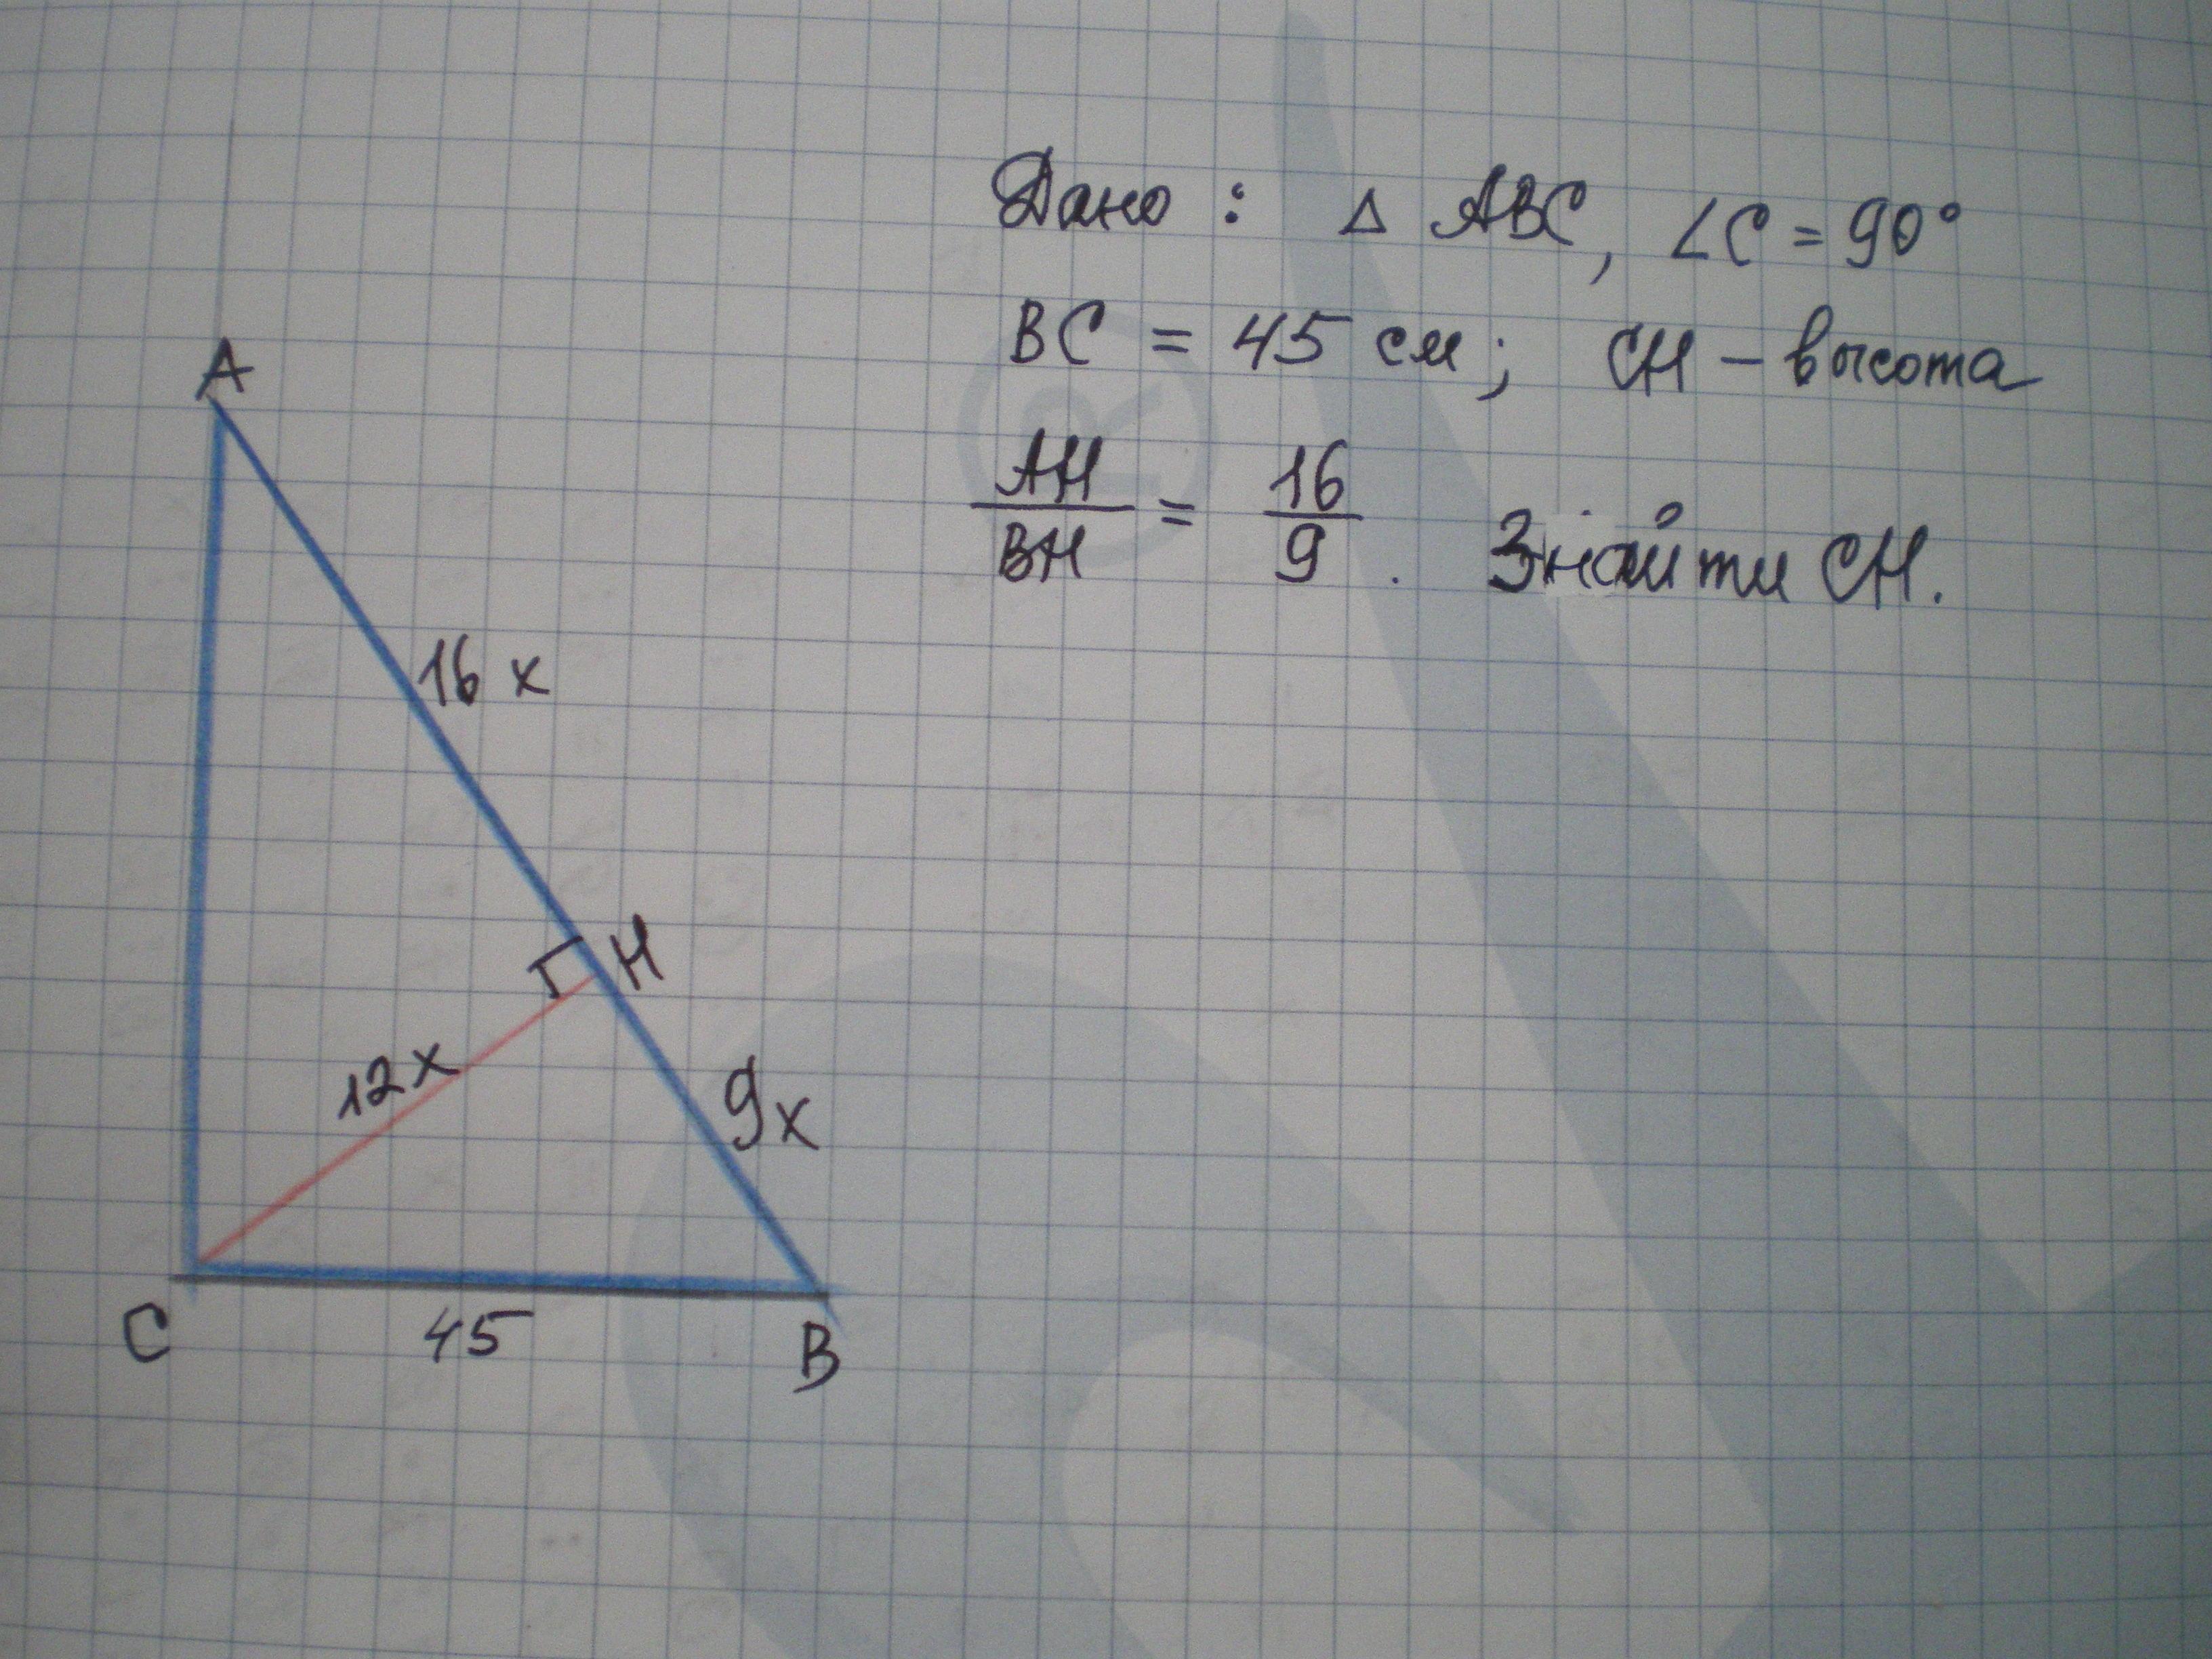 Дано : △ ABC, ∠C = 90°
BC = 45 см; CH – высота
AH/BH = 16/9 . Знайти CH.
A
16 x
H
12x
9x
C
45
B